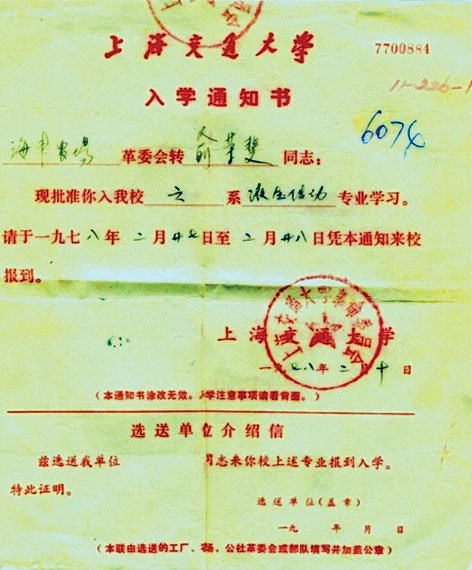 上海交通大学
7700884
11-226-1
入学通知书
6074
海丰农场 革委会转 俞荣斐 同志：
现批准你入我校 六 系 液压传动 专业学习。
请于一九七八年 二月廿七日至 二月廿八日凭本通知来校
报到。
上海交通大学
上海交通大学革命委员会
一九七八年 二月 十日
（本通知书涂改无效。入学注意事项请看背面。）
选送单位介绍信
兹选送我单位 同志来你校上述专业报到入学。
特此证明。
选送单位（盖章）
一九 年 月 日
（本联由选送的工厂、农场、公社革委会或部队填写并加盖公章）